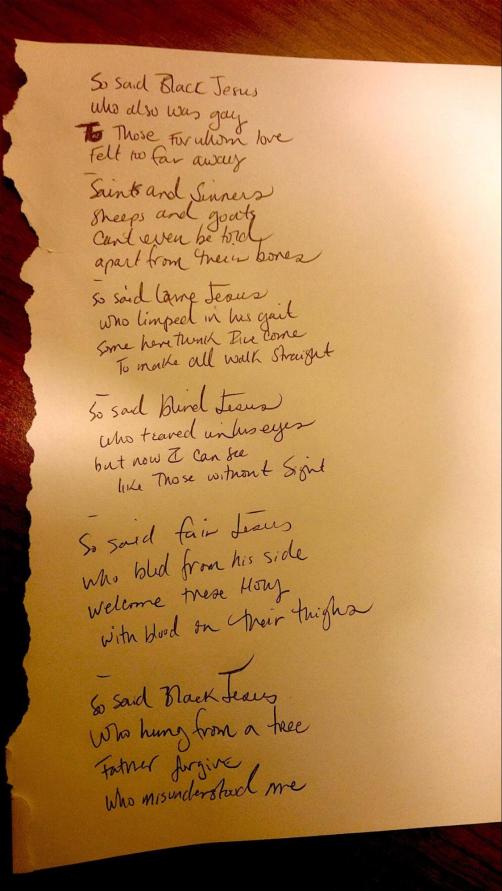 So said Black Jesus
who also was gay
To Those for whom love
Felt too far away
–
Saints and Sinners
Sheeps and goats
Cant even be told
apart from their bones
–
So said lame Jesus
who limped in his gait
Some here think I've come
To make all walk straight
–
So said blind Jesus
who teared in his eyes
but now I can see
like Those without Sight
–
So said fair Jesus
who bled from his side
welcome these Holy
with blood on their thighs
–
So said Black Jesus
Who hung from a tree
Father forgive
who misunderstood me